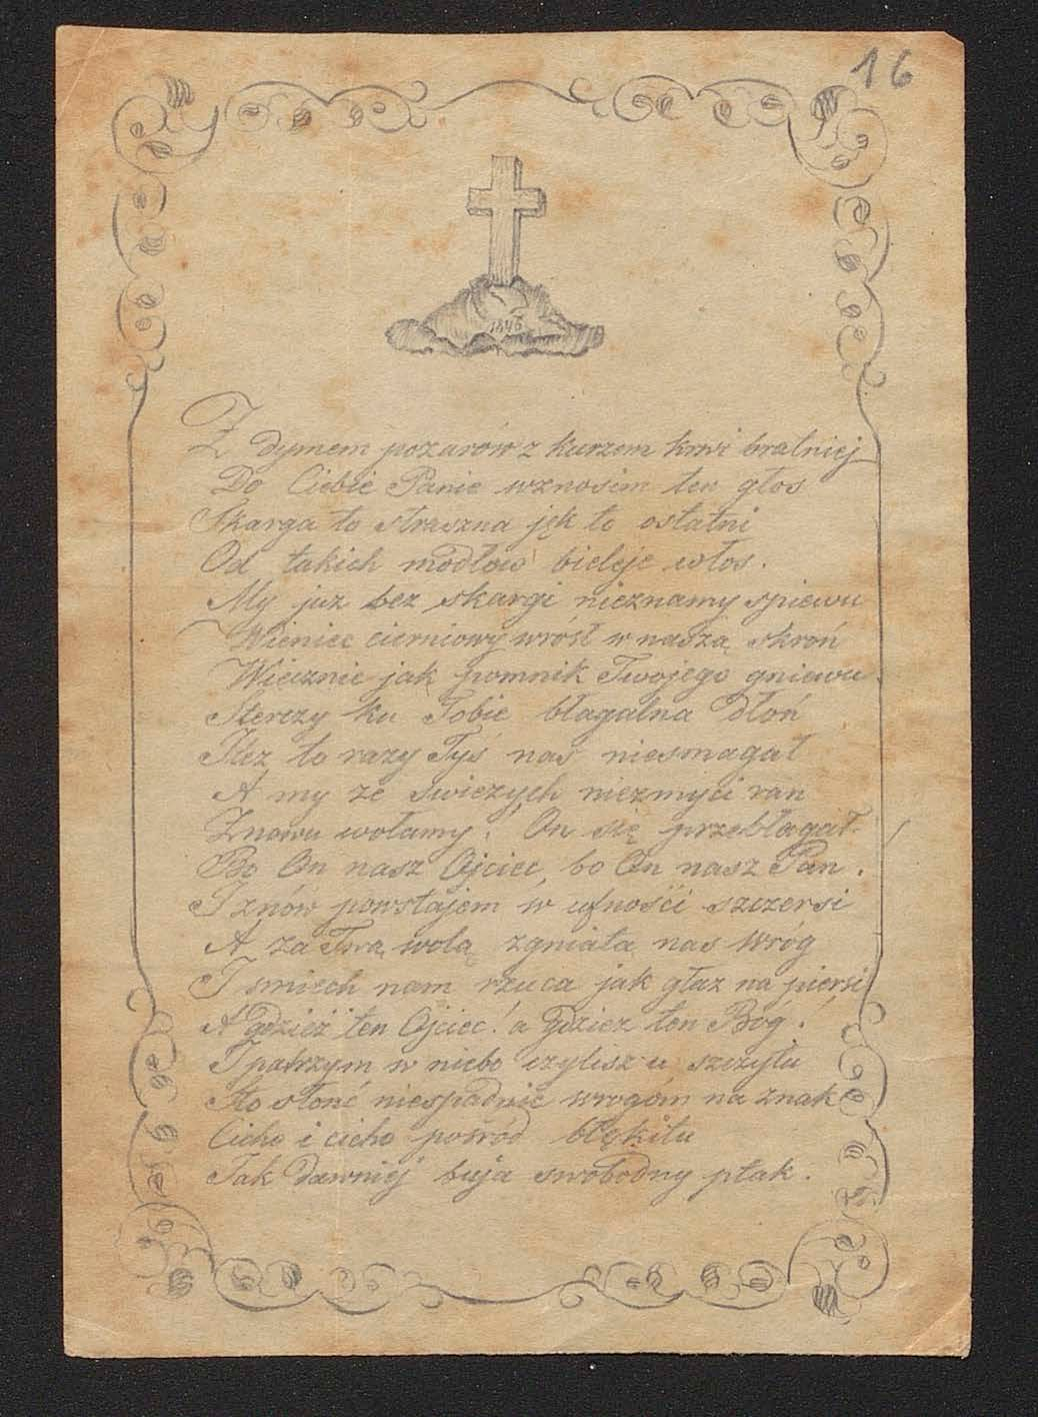 16
1846
Z dymem pozarów z kurzem krwi bratniej
Do Ciebie Panie wznosim ten głos
Skarga to straszna jęk to ostatni
Od takich modłów bieleje włos.
My juz bez skargi nieznamy spiewu
Wieniec cierniowy wrósł w naszą skroń
Wiecznie jak pomnik Twojego gniewu.
Sterczy ku Tobie błagalna dłoń
Iluz to razy Tyś nas niesmagał
A my ze swiezych niezmyci ran
Znowu wołamy! On się przebłagał.
Bo On nasz Ojciec, bo On nasz Pan.
I znów powstajem w ufności szczersi
A za Twą wolą zgniata nas wróg
I smiech nam rzuca jak głaz na piersi
A gdzież ten Ojciec! a gdziez ten Bóg.
I patrzym w niebo czylisz u szczytu
Sto słońć niespadnie wrogóm na znak
Cicho i cicho pośród błękitu
Jak dawniej buja swobodny ptak.